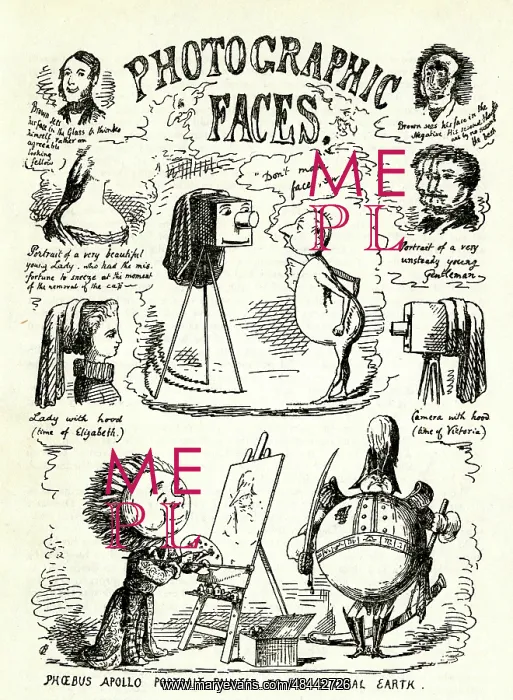 PHOTOGRAPHIC
FACES.
Brown sees
his face in the Glass & thinks
himself rather an
agreeable
looking
fellow
Brown sees his face in the
Negative. His second
the
"Don't
face
ME
PL
Portrait of a very beautiful
young Lady. who had the mis-
fortune to sneeze at the moment
of the removal of the cap
Portrait of a very
unsteady young
Gentleman
Lady with hood
(time of Elizabeth.)
Camera with hood
(time of Victoria)
ME
PL
PHŒBUS APOLLO
EARTH.
www.maryevans.com/48442726